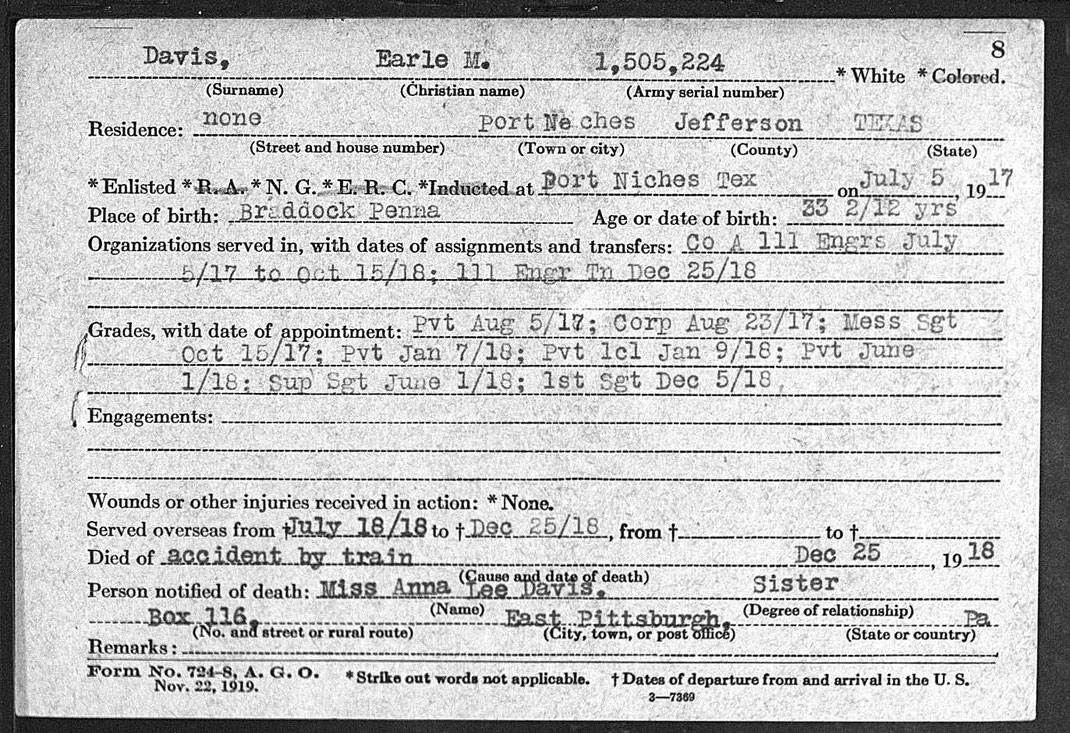 8
Davis, Earle M. 1,505,224 * White * Colored.
(Surname) (Christian name) (Army serial number)
Residence: none Port Neches Jefferson TEXAS
(Street and house number) (Town or city) (County) (State)
* Enlisted * R. A. * N. G. * E. R. C. *Inducted at Port Niches Tex on July 5, 1917
Place of birth: Braddock Penna Age or date of birth: 33 2/12 yrs
Organizations served in, with dates of assignments and transfers: Co A 111 Engrs July
5/17 to Oct 15/18; 111 Engr Tn Dec 25/18
Grades, with date of appointment: Pvt Aug 5/17; Corp Aug 23/17; Mess Sgt
Oct 15/17; Pvt Jan 7/18; Pvt 1cl Jan 9/18; Pvt June
1/18; Sup Sgt June 1/18; 1st Sgt Dec 5/18
Engagements:
Wounds or other injuries received in action: * None.
Served overseas from † July 18/18 to † Dec 25/18, from † to †
Died of accident by train Dec 25, 1918
(Cause and date of death)
Person notified of death: Miss Anna Lee Davis. Sister
(Name) (Degree of relationship)
Box 116, East Pittsburgh, Pa
(No. and street or rural route) (City, town, or post office) (State or country)
Remarks:
Form No. 724-8, A. G. O. * Strike out words not applicable. † Dates of departure from and arrival in the U. S.
Nov. 22, 1919. 3—7369